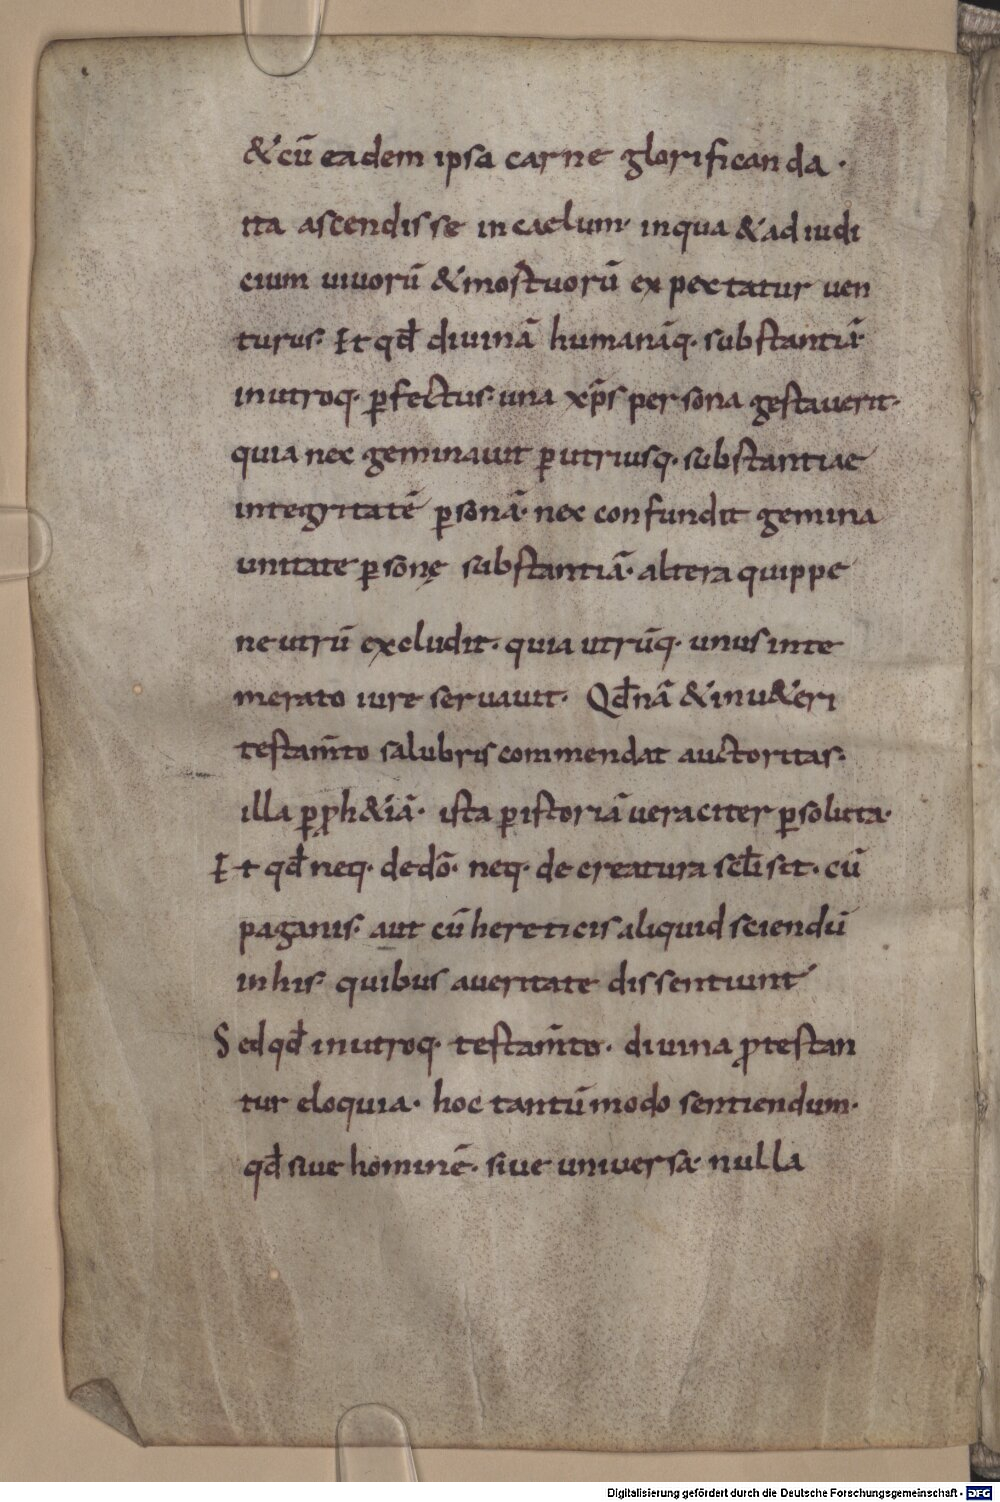 & cū eadem ipsa carne glorificanda ·
ita ascendisse in caelum· inqua & ad iudi
cium uiuorū & mortuorū expectatur uen
turus· Et qđ diuinā humanāq· substantiā·
inutroq· ꝑfectus· una xp̄s persona gestauerit·
quia nec geminauit ꝑ utriusq· substantiae
integritatē ꝑsonā· nec confundit gemina
unitate ꝑsonę substantiā· altera quippe
neutrū excludit· quia utrūq· unus inte
merato iure seruauit· Qđ nā & inu&eri
testam̄to salubris commendat auctoritas·
illa ꝑ ꝓph&iā· ista ꝑ istoriā ueraciter ꝑsoluta·
Et qđ neq· de dō· neq· de creatura sc̄li sit· cū
paganis· aut cū hereticis aliquid sciendū
in his· quibus aueritate dissentiunt
Sed qđ inutroq· testam̄to· diuina ꝓtestan
tur eloquia· hoc tantūmodo sentiendum·
qđ siue hominē· siue uniuersa· nulla
Digitalisierung gefördert durch die Deutsche Forschungsgemeinschaft - DFG